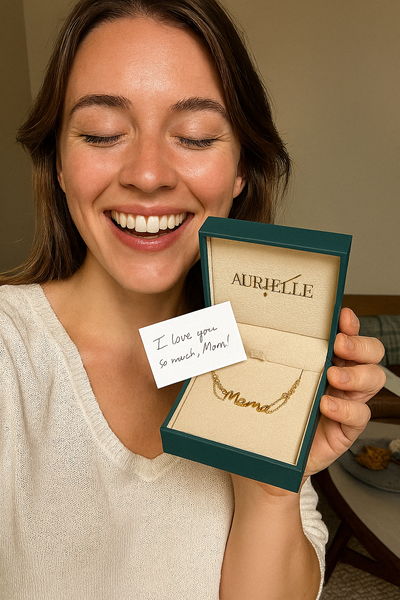 AURIÉLLE
I love you
so much, Mom!
Mama